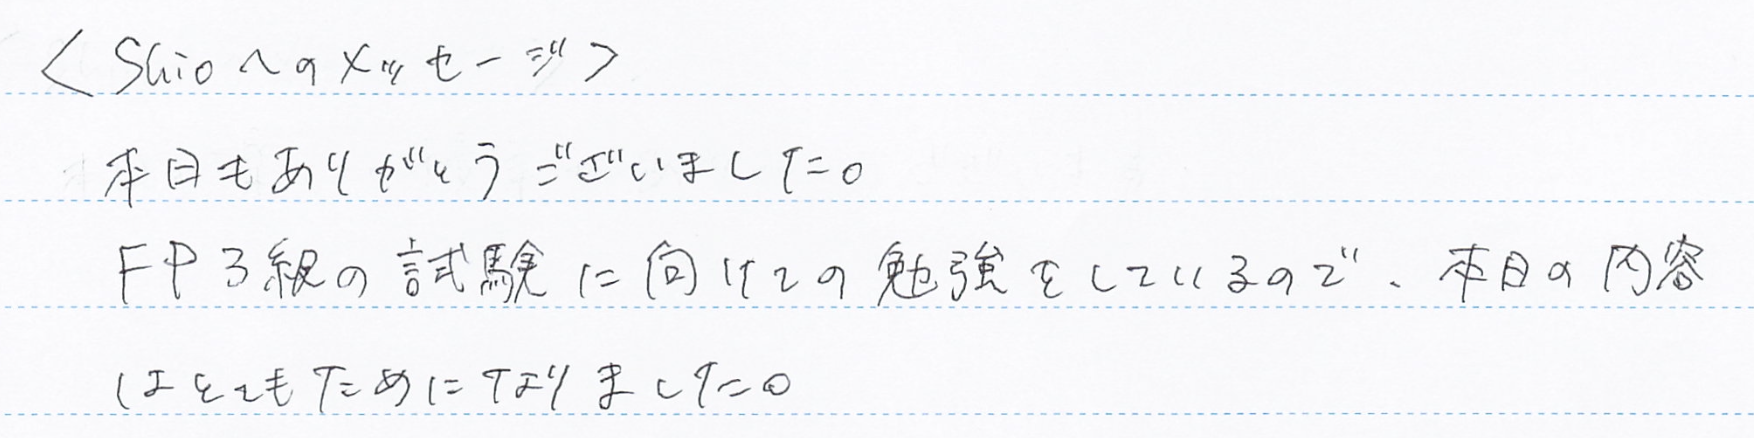 ＜Shioへのメッセージ＞
本日もありがとうございました。
FP3級の試験に向けての勉強をしているので、本日の内容
はとてもためになりました。